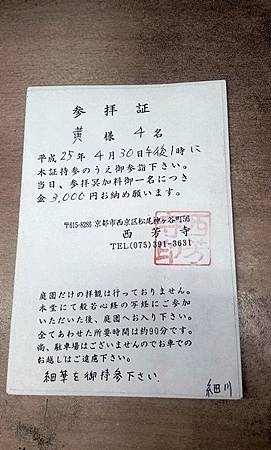 参拝証
黄様 4名
平成25年4月30日午後1時に
本証持参のうえ御参詣下さい。
当日、参拝冥加料御一名につき
金3,000円お納め願います。
〒615-8286 京都市西京区松尾神ヶ谷町56
西芳寺
TEL(075)391-3631
西芳寺印
庭園だけの拝観は行っておりません。
本堂にて般若心経の写経にご参加
いただいた後、庭園へお入り下さい。
全てあわせた所要時間は約90分です。
尚、駐車場はございませんのでお車での
お越しはご遠慮下さい。
細筆を御持参下さい
細川